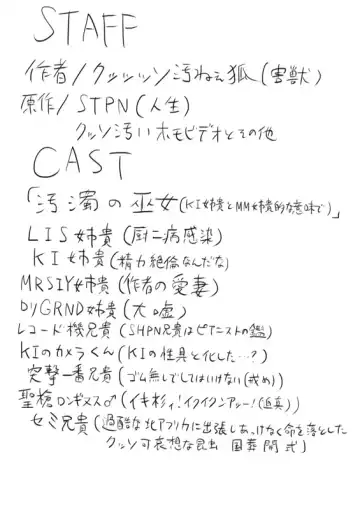 STAFF
作者/クッッッソ汚ねぇ狐(害獣)
原作/STPN(人生)
クッソ汚いホモビデオとその他
CAST
「汚濁の巫女(KI姉貴とMM姉貴的な意味で)」
LIS姉貴(厨二病感染)
KI姉貴(精力絶倫なんだな)
MRSIY姉貴(作者の愛妻)
DリGRND姉貴(大嘘)
レコード機兄貴(SHPN兄貴はピアニストの鑑)
KIのカメラくん(KIの性具と化した…?)
突撃一番兄貴(ゴム無しでしてはいけない(戒め))
聖槍ロンギヌス♂(イキ杉ィ!イクイクンアッー!(迫真))
セミ兄貴(過酷な北アフリカに出張しあっけなく命を落とした
クッソ可哀想な昆虫 国葬開式)